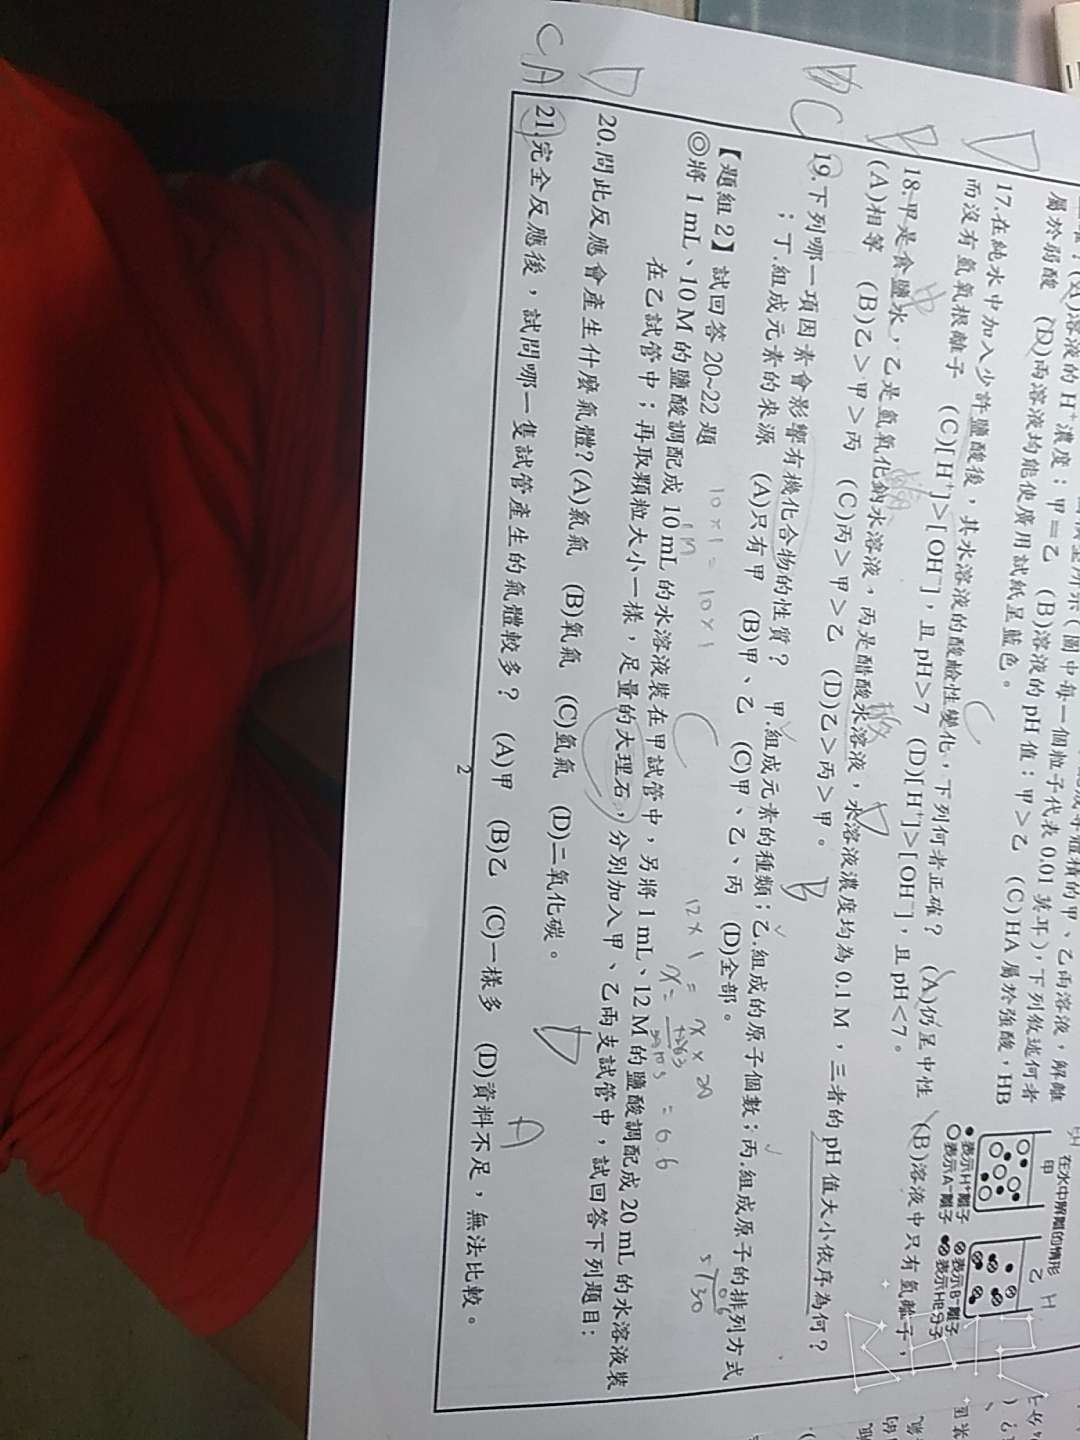 溶液的H⁺濃度：甲＝乙 (B)溶液的pH值：甲＞乙 (C)HA屬於強酸，HB
屬於弱酸 (D)兩溶液均能使廣用試紙呈藍色。
在水中解離的情形
甲 乙
●表示H⁺離子
○表示A⁻離子
表示B⁻離子
表示HB分子
17.在純水中加入少許鹽酸後，其水溶液的酸鹼性變化，下列何者正確？ (A)仍呈中性 (B)溶液中只有氫離子，
而沒有氫氧根離子 (C)[H⁺]＞[OH⁻]，且pH＞7 (D)[H⁺]＞[OH⁻]，且pH＜7。
18.甲是食鹽水，乙是氫氧化鈉水溶液，丙是醋酸水溶液，水溶液濃度均為0.1M，三者的pH值大小依序為何？
(A)相等 (B)乙＞甲＞丙 (C)丙＞甲＞乙 (D)乙＞丙＞甲。
19.下列哪一項因素會影響有機化合物的性質？ 甲.組成元素的種類；乙.組成的原子個數；丙.組成原子的排列方式
；丁.組成元素的來源 (A)只有甲 (B)甲、乙 (C)甲、乙、丙 (D)全部。
【題組2】試回答20~22題
◎將1 mL、10 M的鹽酸調配成10 mL的水溶液裝在甲試管中，另將1 mL、12 M的鹽酸調配成20 mL的水溶液裝
在乙試管中；再取顆粒大小一樣，足量的大理石，分別加入甲、乙兩支試管中，試回答下列題目：
20.問此反應會產生什麼氣體?(A)氮氣 (B)氧氣 (C)氫氣 (D)二氧化碳。
21.完全反應後，試問哪一隻試管產生的氣體較多？ (A)甲 (B)乙 (C)一樣多 (D)資料不足，無法比較。
2
D
B
C
D
CA
中
酸
C
D
B
C
D
A
10×1=10×1
1M
12×1=x×20